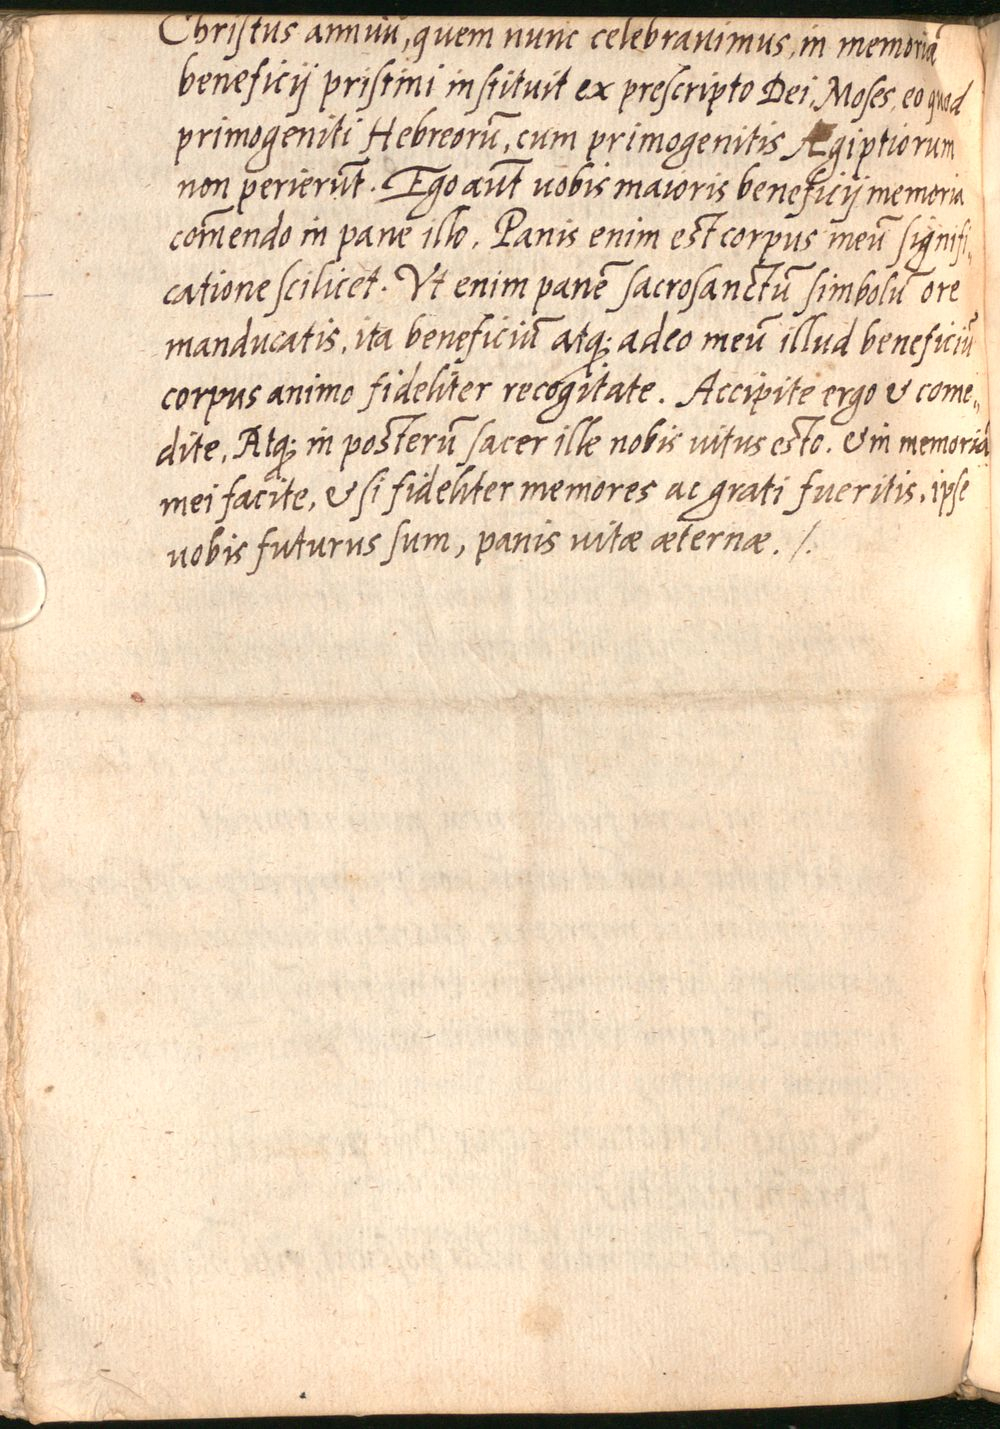 Christus annuū, quem nunc celebrauimus, in memoriā
beneficij pristini instituit ex prescripto Dei, Moses, eo quod
primogeniti Hebreorū, cum primogenitis Ægiptiorum
non perierūt. Ego aūt uobis maioris beneficij memoria
com̄endo in pane illo. Panis enim est corpus meū signifi„
catione scilicet. Vt enim panē sacrosanctū simbolū ore
manducatis, ita beneficiū atq; adeo meū illud beneficiū
corpus animo fideliter recogitate. Accipite ergo & come„
dite, Atq; in posterū sacer ille nobis uitus esto. & in memoriā
mei facite, & si fideliter memores ac grati fueritis, ipse
uobis futurus sum, panis uitæ æternæ. /.